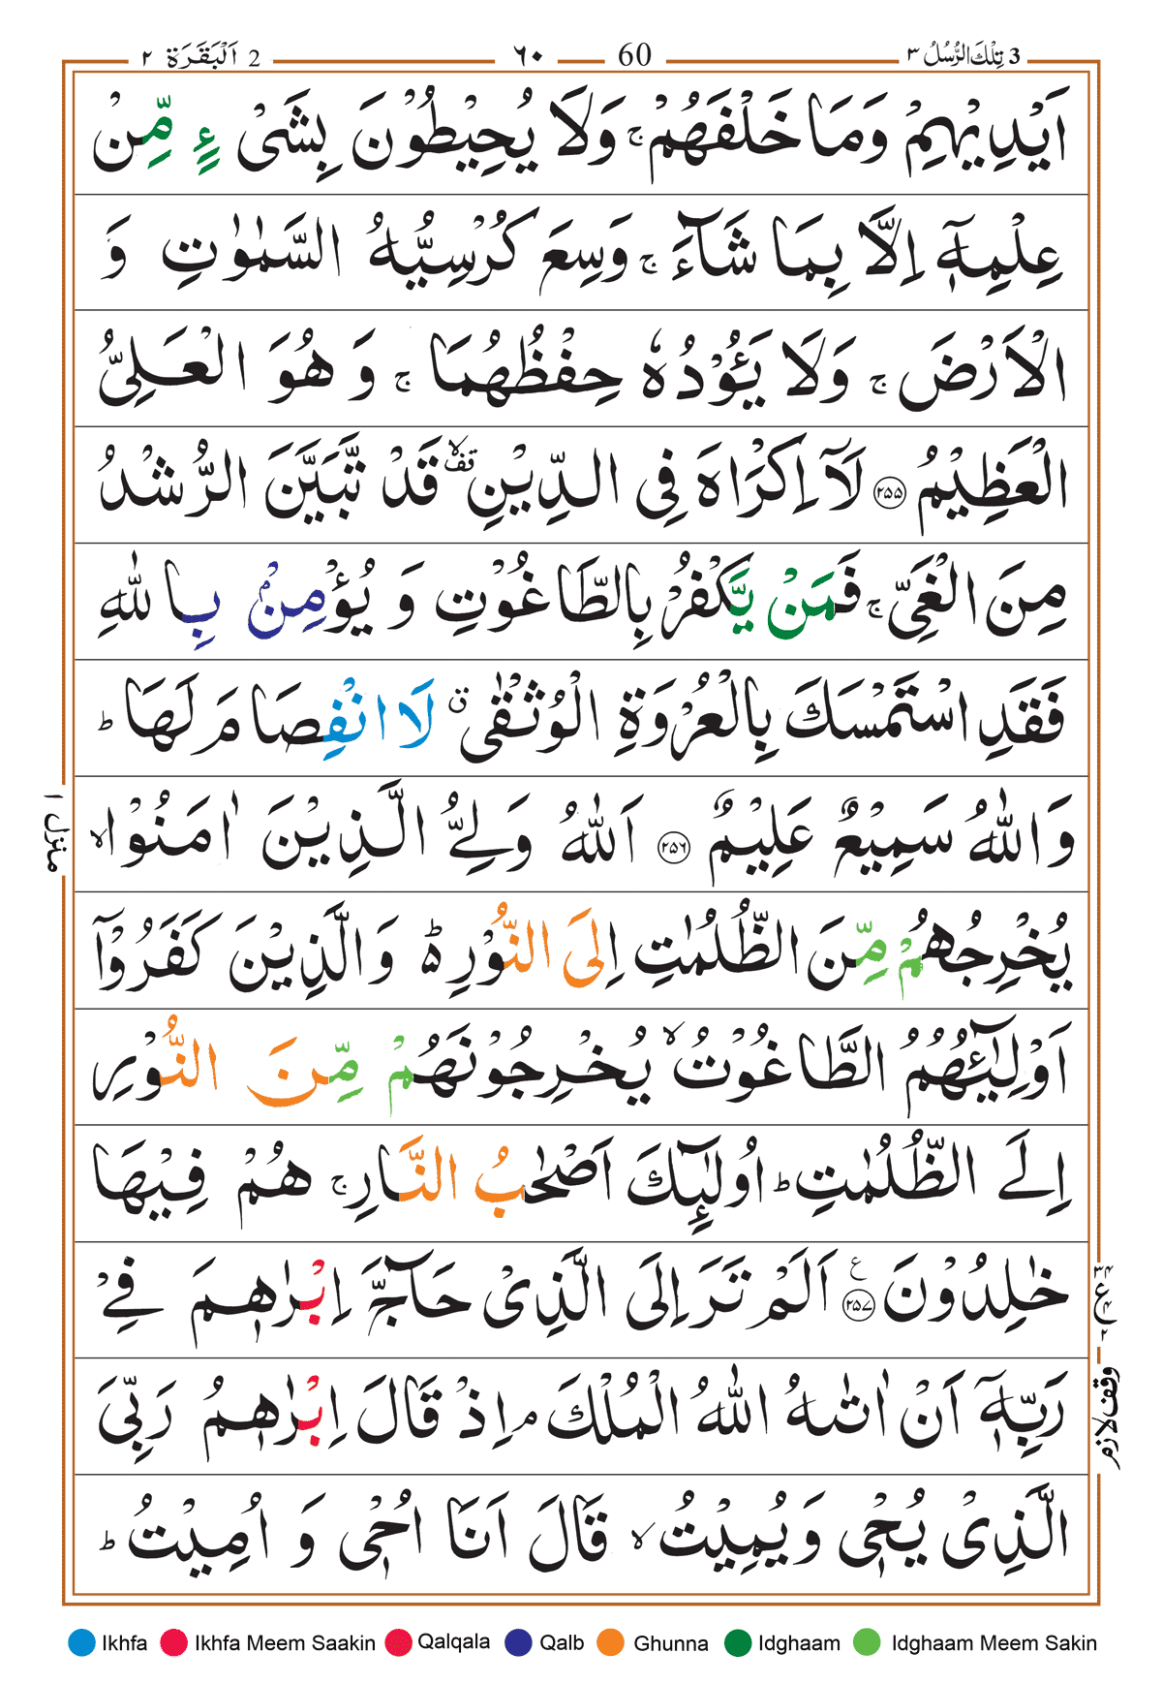 3 تِلْكَ الرُّسُلُ ٣ 60 ٦٠ 2 اَلْبَقَرَة ٢
اَيْدِيْهِمْ وَمَا خَلْفَهُمْ ۚ وَلَا يُحِيْطُوْنَ بِشَىْءٍ مِّنْ
عِلْمِهٖۤ اِلَّا بِمَا شَآءَ ۚ وَسِعَ كُرْسِيُّهُ السَّمٰوٰتِ وَ
الْاَرْضَ ۚ وَلَا يَـُٔوْدُهٗ حِفْظُهُمَا ۚ وَ هُوَ الْعَلِىُّ
الْعَظِيْمُ ﴿٢٥٥﴾ لَاۤ اِكْرَاهَ فِى الدِّيْنِ قف لا قَدْ تَّبَيَّنَ الرُّشْدُ
مِنَ الْغَىِّ ۚ فَمَنْ يَّكْفُرْ بِالطَّاغُوْتِ وَ يُؤْمِنْۢ بِاللّٰهِ
فَقَدِ اسْتَمْسَكَ بِالْعُرْوَةِ الْوُثْقٰى ق لَا انْفِصَامَ لَهَا ؕ
وَاللّٰهُ سَمِيْعٌ عَلِيْمٌ ﴿٢٥٦﴾ اَللّٰهُ وَلِىُّ الَّذِيْنَ اٰمَنُوْا ۙ
يُخْرِجُهُمْ مِّنَ الظُّلُمٰتِ اِلَى النُّوْرِ ؕ٥ وَالَّذِيْنَ كَفَرُوْۤا
اَوْلِيٰٓـُٔهُمُ الطَّاغُوْتُ ۙ يُخْرِجُوْنَهُمْ مِّنَ النُّوْرِ
اِلَى الظُّلُمٰتِ ؕ اُولٰٓٮِٕكَ اَصْحٰبُ النَّارِ ۚ هُمْ فِيْهَا
خٰلِدُوْنَ ﴿٢٥٧﴾ ع اَلَمْ تَرَ اِلَى الَّذِىْ حَآجَّ اِبْرٰهٖمَ فِىْ
رَبِّهٖۤ اَنْ اٰتٰٮهُ اللّٰهُ الْمُلْكَ ۘ اِذْ قَالَ اِبْرٰهٖمُ رَبِّىَ
الَّذِىْ يُحْىٖ وَيُمِيْتُ ۙ قَالَ اَنَا اُحْىٖ وَ اُمِيْتُ ؕ
منزل ١
٣٤
ع
٢
وقف لازم
Ikhfa Ikhfa Meem Saakin Qalqala Qalb Ghunna Idghaam Idghaam Meem Sakin